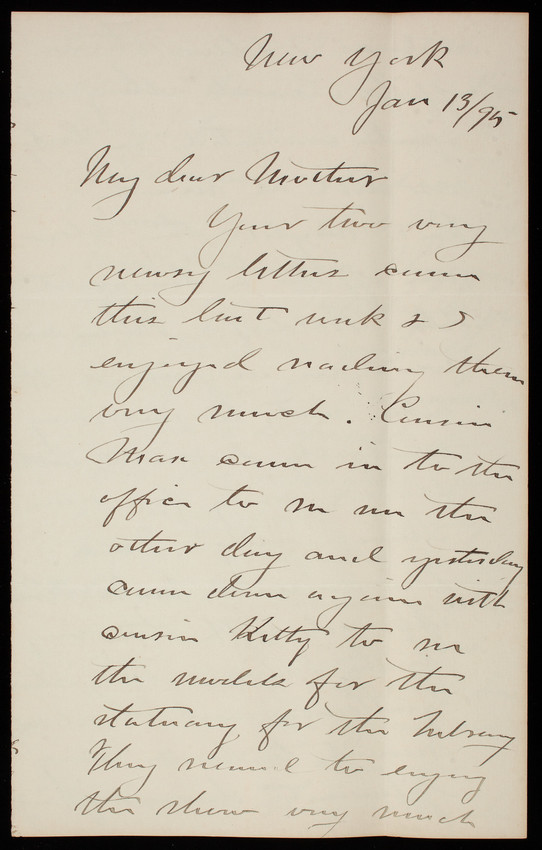 New York
Jan 13/95
My dear Mother
Your two very
newsy letters came
this last week & I
enjoyed reading them
very much. Cousin
Max came in to the
office to see me the
other day and yesterday
came down again with
cousin Kitty to see
the models for the
statuary for the Library
They seemed to enjoy
the show very much